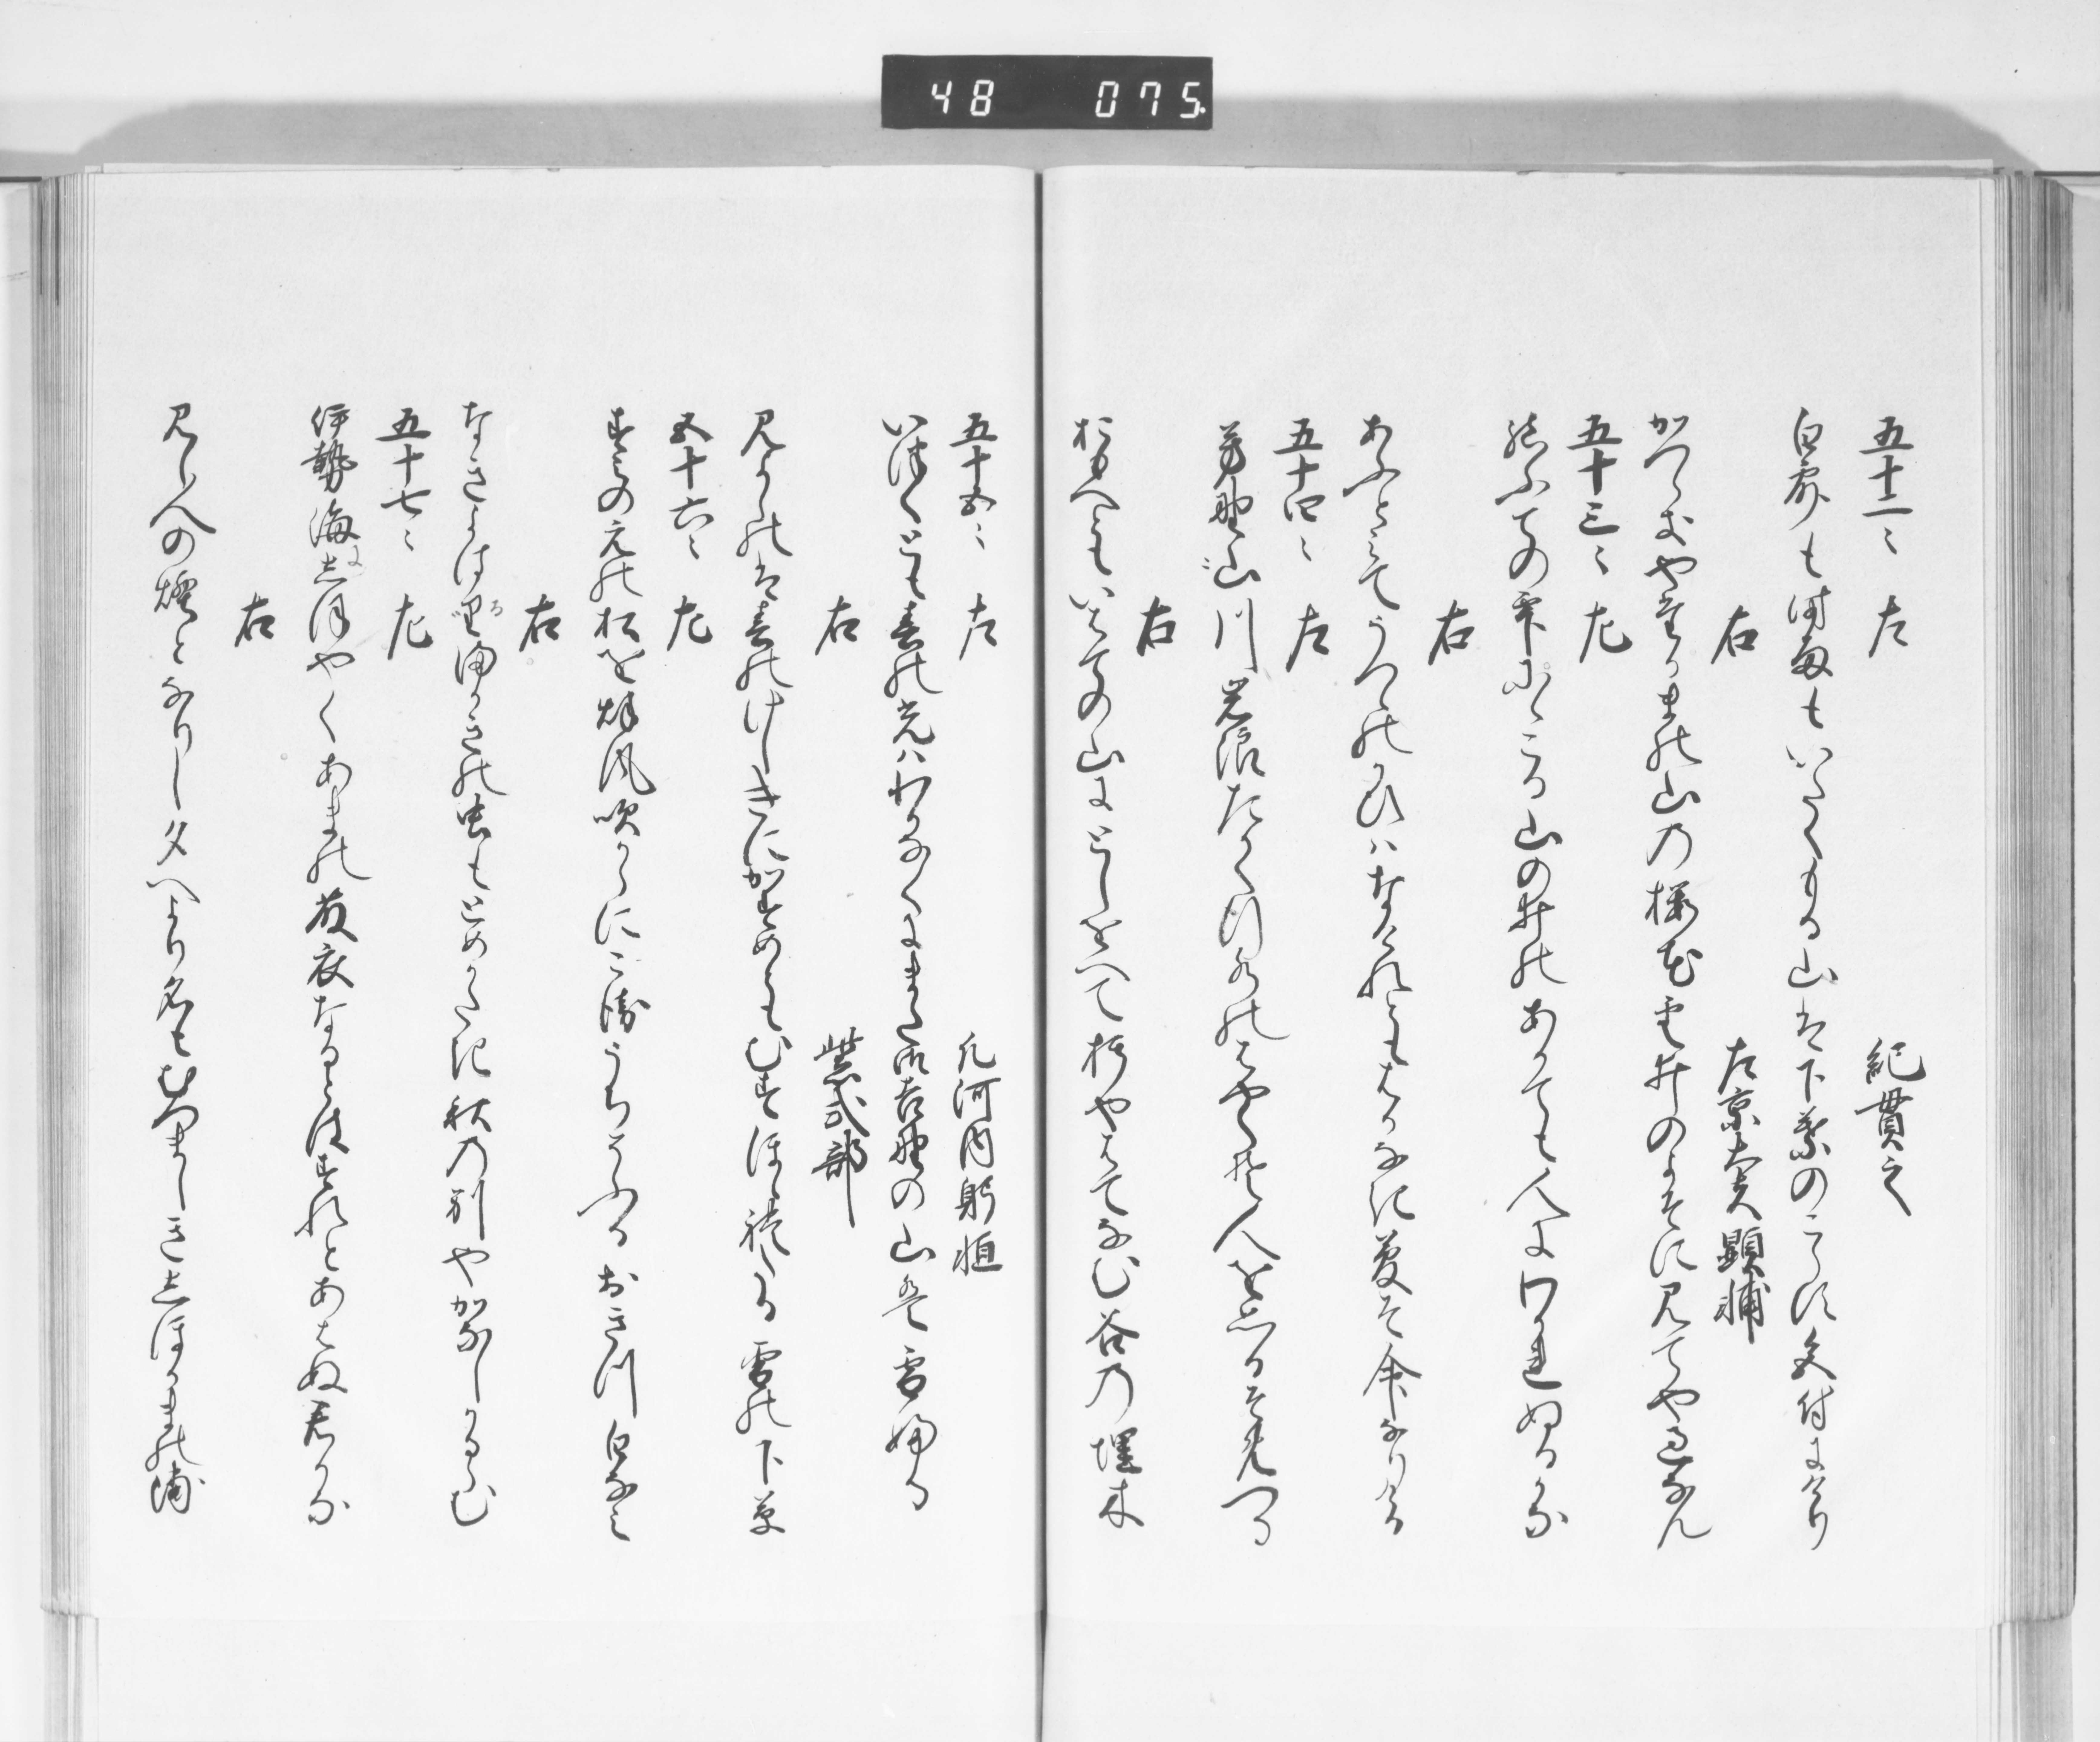 48 075
五十二〻 左 紀貫之
白露も時雨もいたくもる山は下葉のこらす色付にけり
右 左京大夫顕輔
かつらきやたかまの山の桜花雲井のよそに見てや過なん
五十三〻 左
結ふ手の雫ににこる山の井のあかても人にわかれぬるかな
右
あふとみてうつゝのかひはなけれともはかなき夢そ命なりける
五十四〻 左
芳野山川岩浪たかく行水のはやくそ人を思ひそめつる
右
おもへともいはての山にとしをへて朽やはてなむ谷の埋木
五十五〻 左 凡河内躬恒
いつくとも春の光はわかなくにまたみ吉野の山は雪ふる
右 紫式部
みよしのは春のけしきにかすめともむすほゝれたる雪の下草
五十六〻 左
すみの江の松を秋風吹からにこゑうちそふるおきつ白なみ
右
なきよはるまかきの虫もとめかたき秋の別やかなしかるらむ
五十七〻 左
伊勢海にしほやくあまの藤衣なるとはすれとあはぬ君かな
右
見し人の煙となりし夕へより名もむつましきしほかまの浦